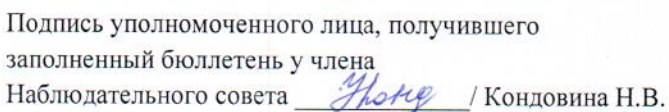 Подпись уполномоченного лица, получившего
заполненный бюллетень у члена
Наблюдательного совета ____________ / Кондовина Н.В.